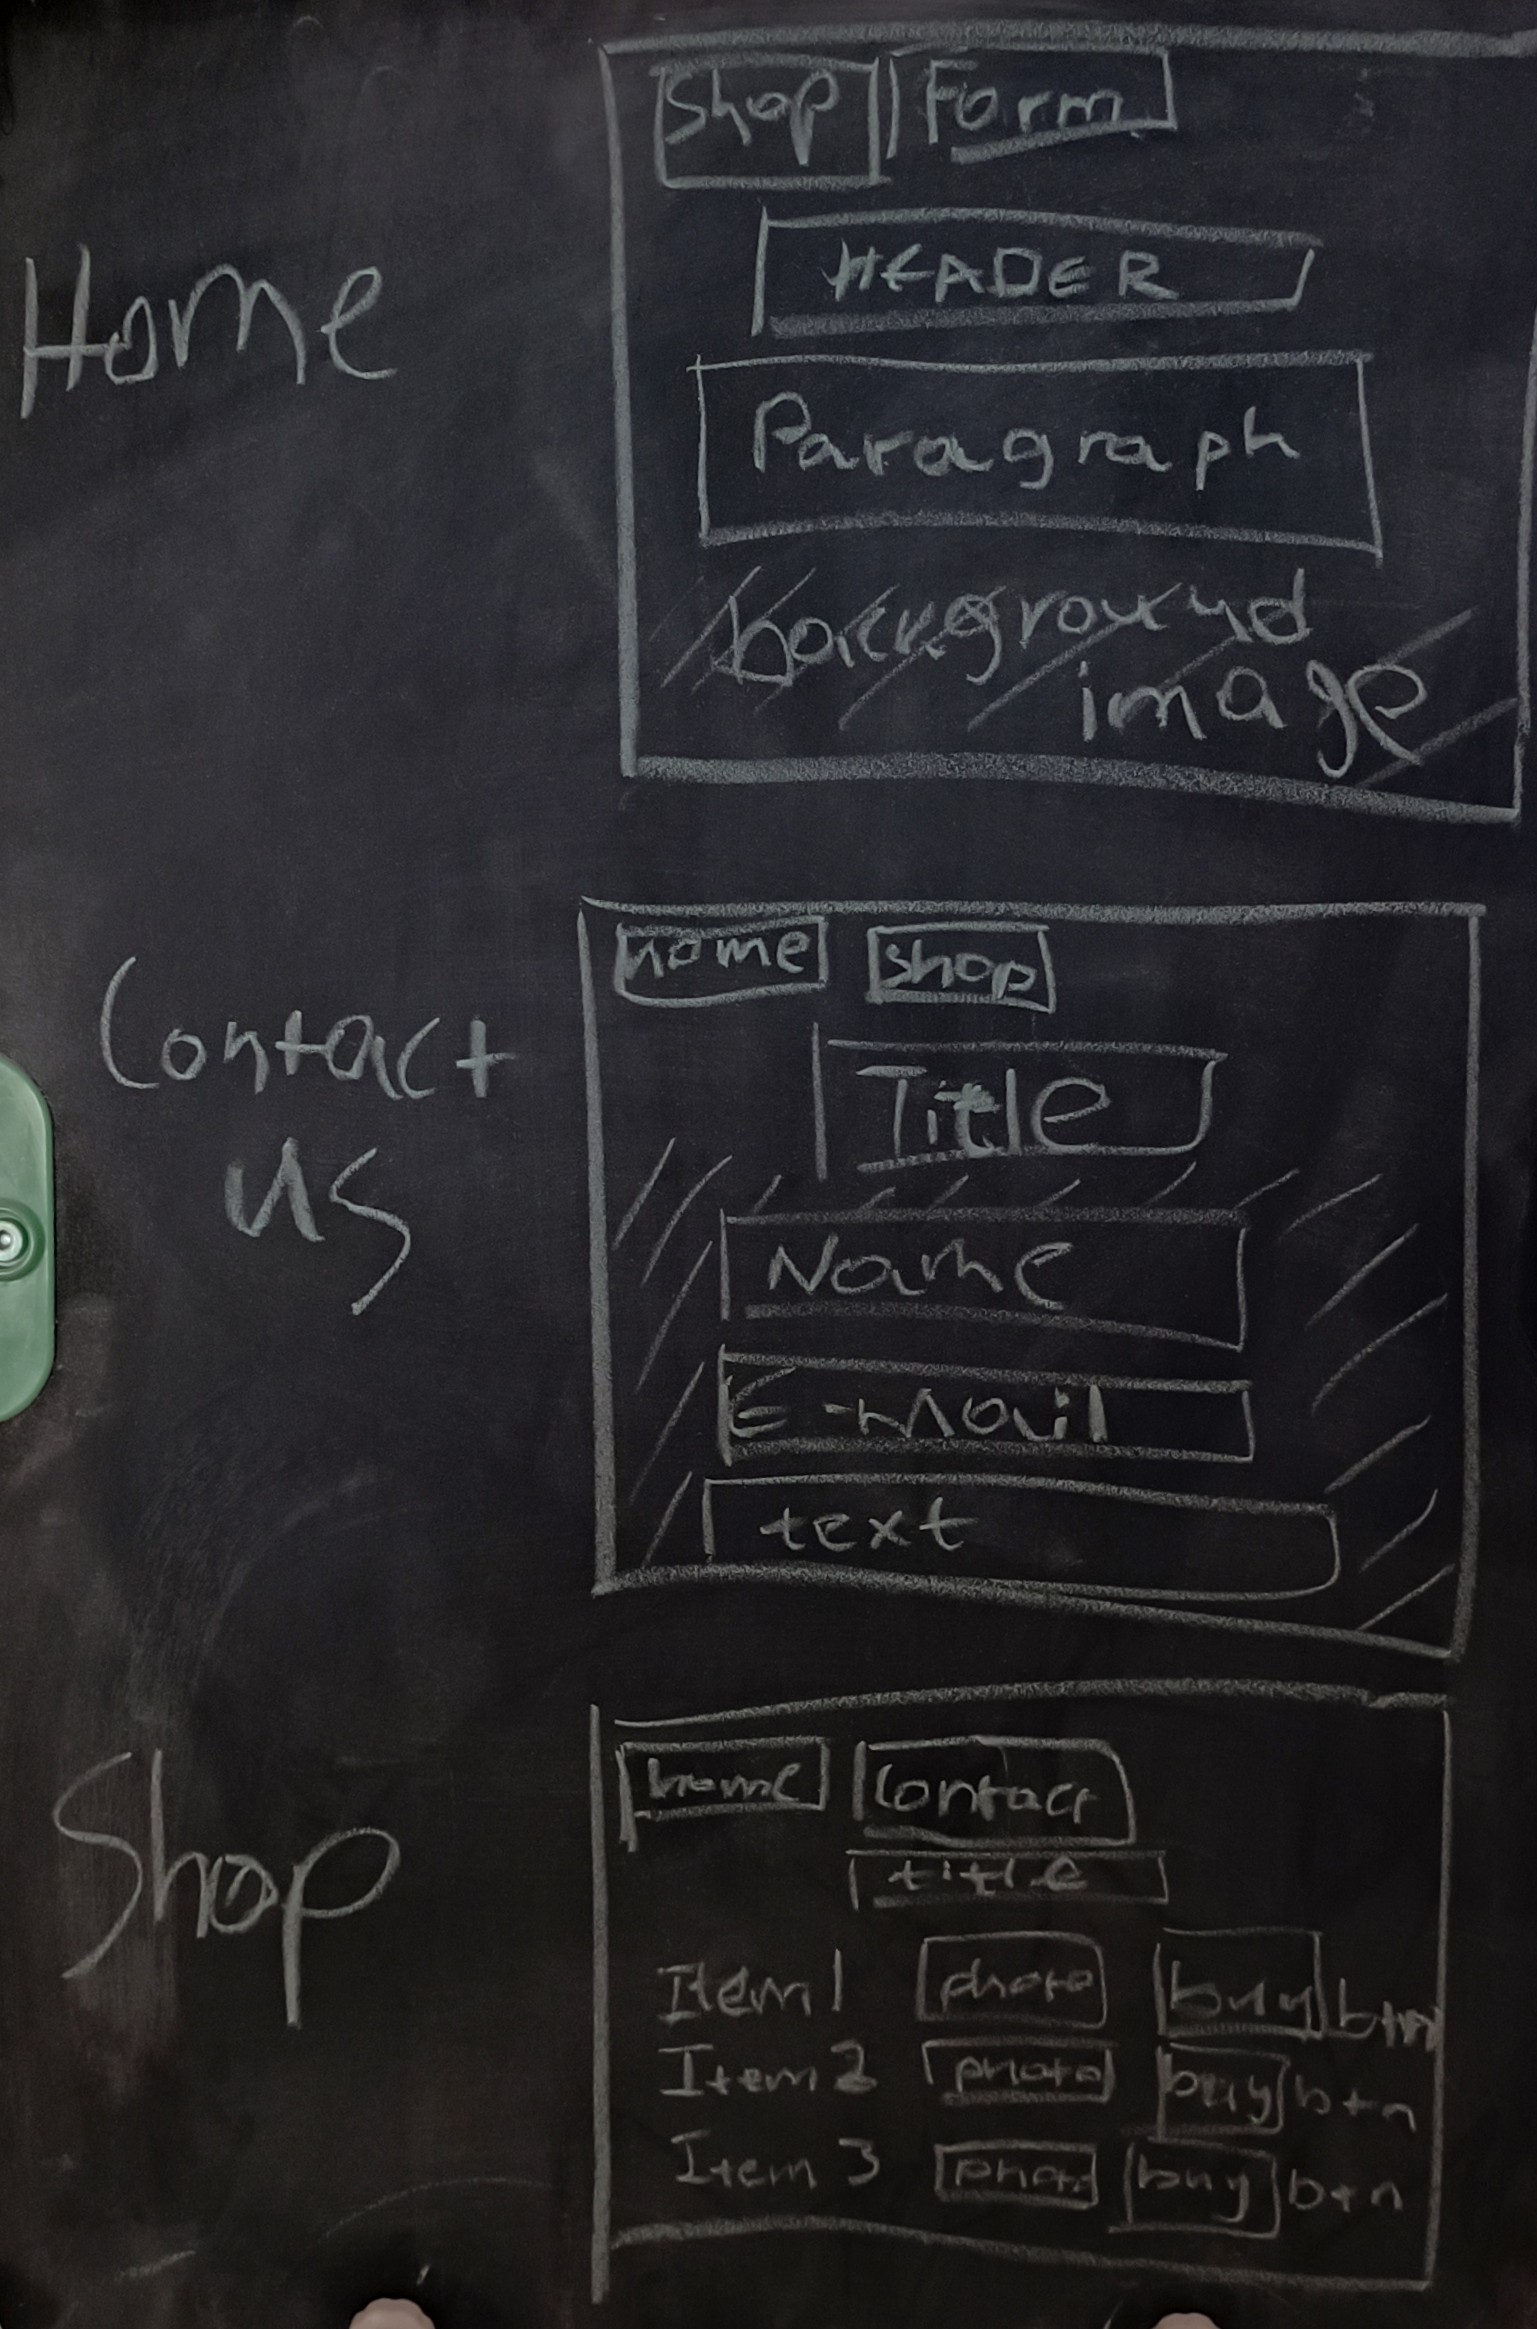 Home
Shop Form
HEADER
Paragraph
background
image
Contact
us
home shop
Title
Name
E-mail
text
Shop
home Contact
title
Item 1 photo buy btn
Item 2 photo buy btn
Item 3 photo buy btn